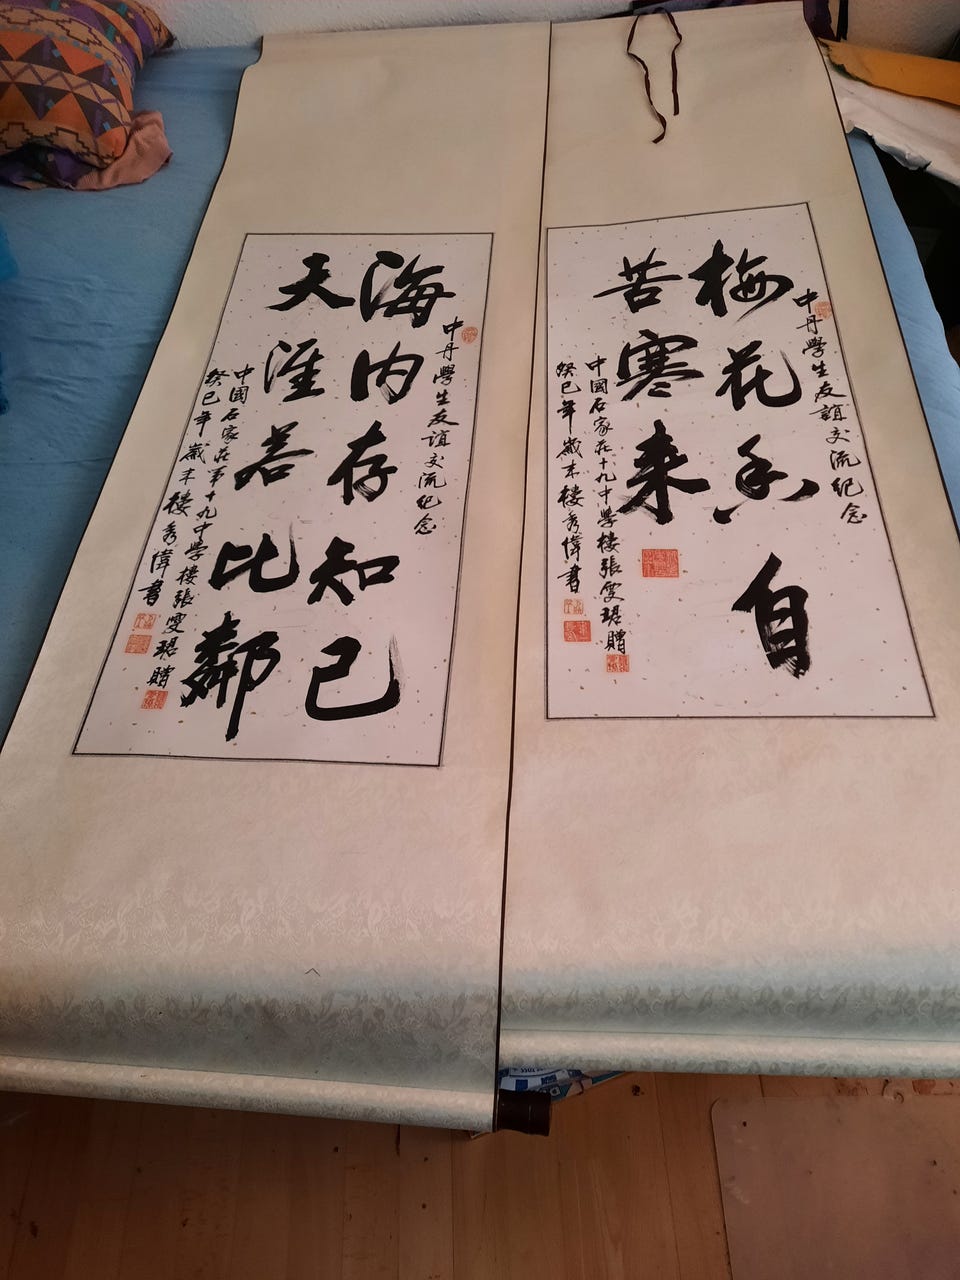 中丹學生友誼交流紀念
梅花香自
苦寒来
中國石家庄十九中学楼張雯珺贈
癸巳年歲末樓秀偉書
中丹學生友誼交流紀念
海内存知己
天涯若比鄰
中國石家庄第十九中学楼張雯珺贈
癸巳年歲末樓秀偉書